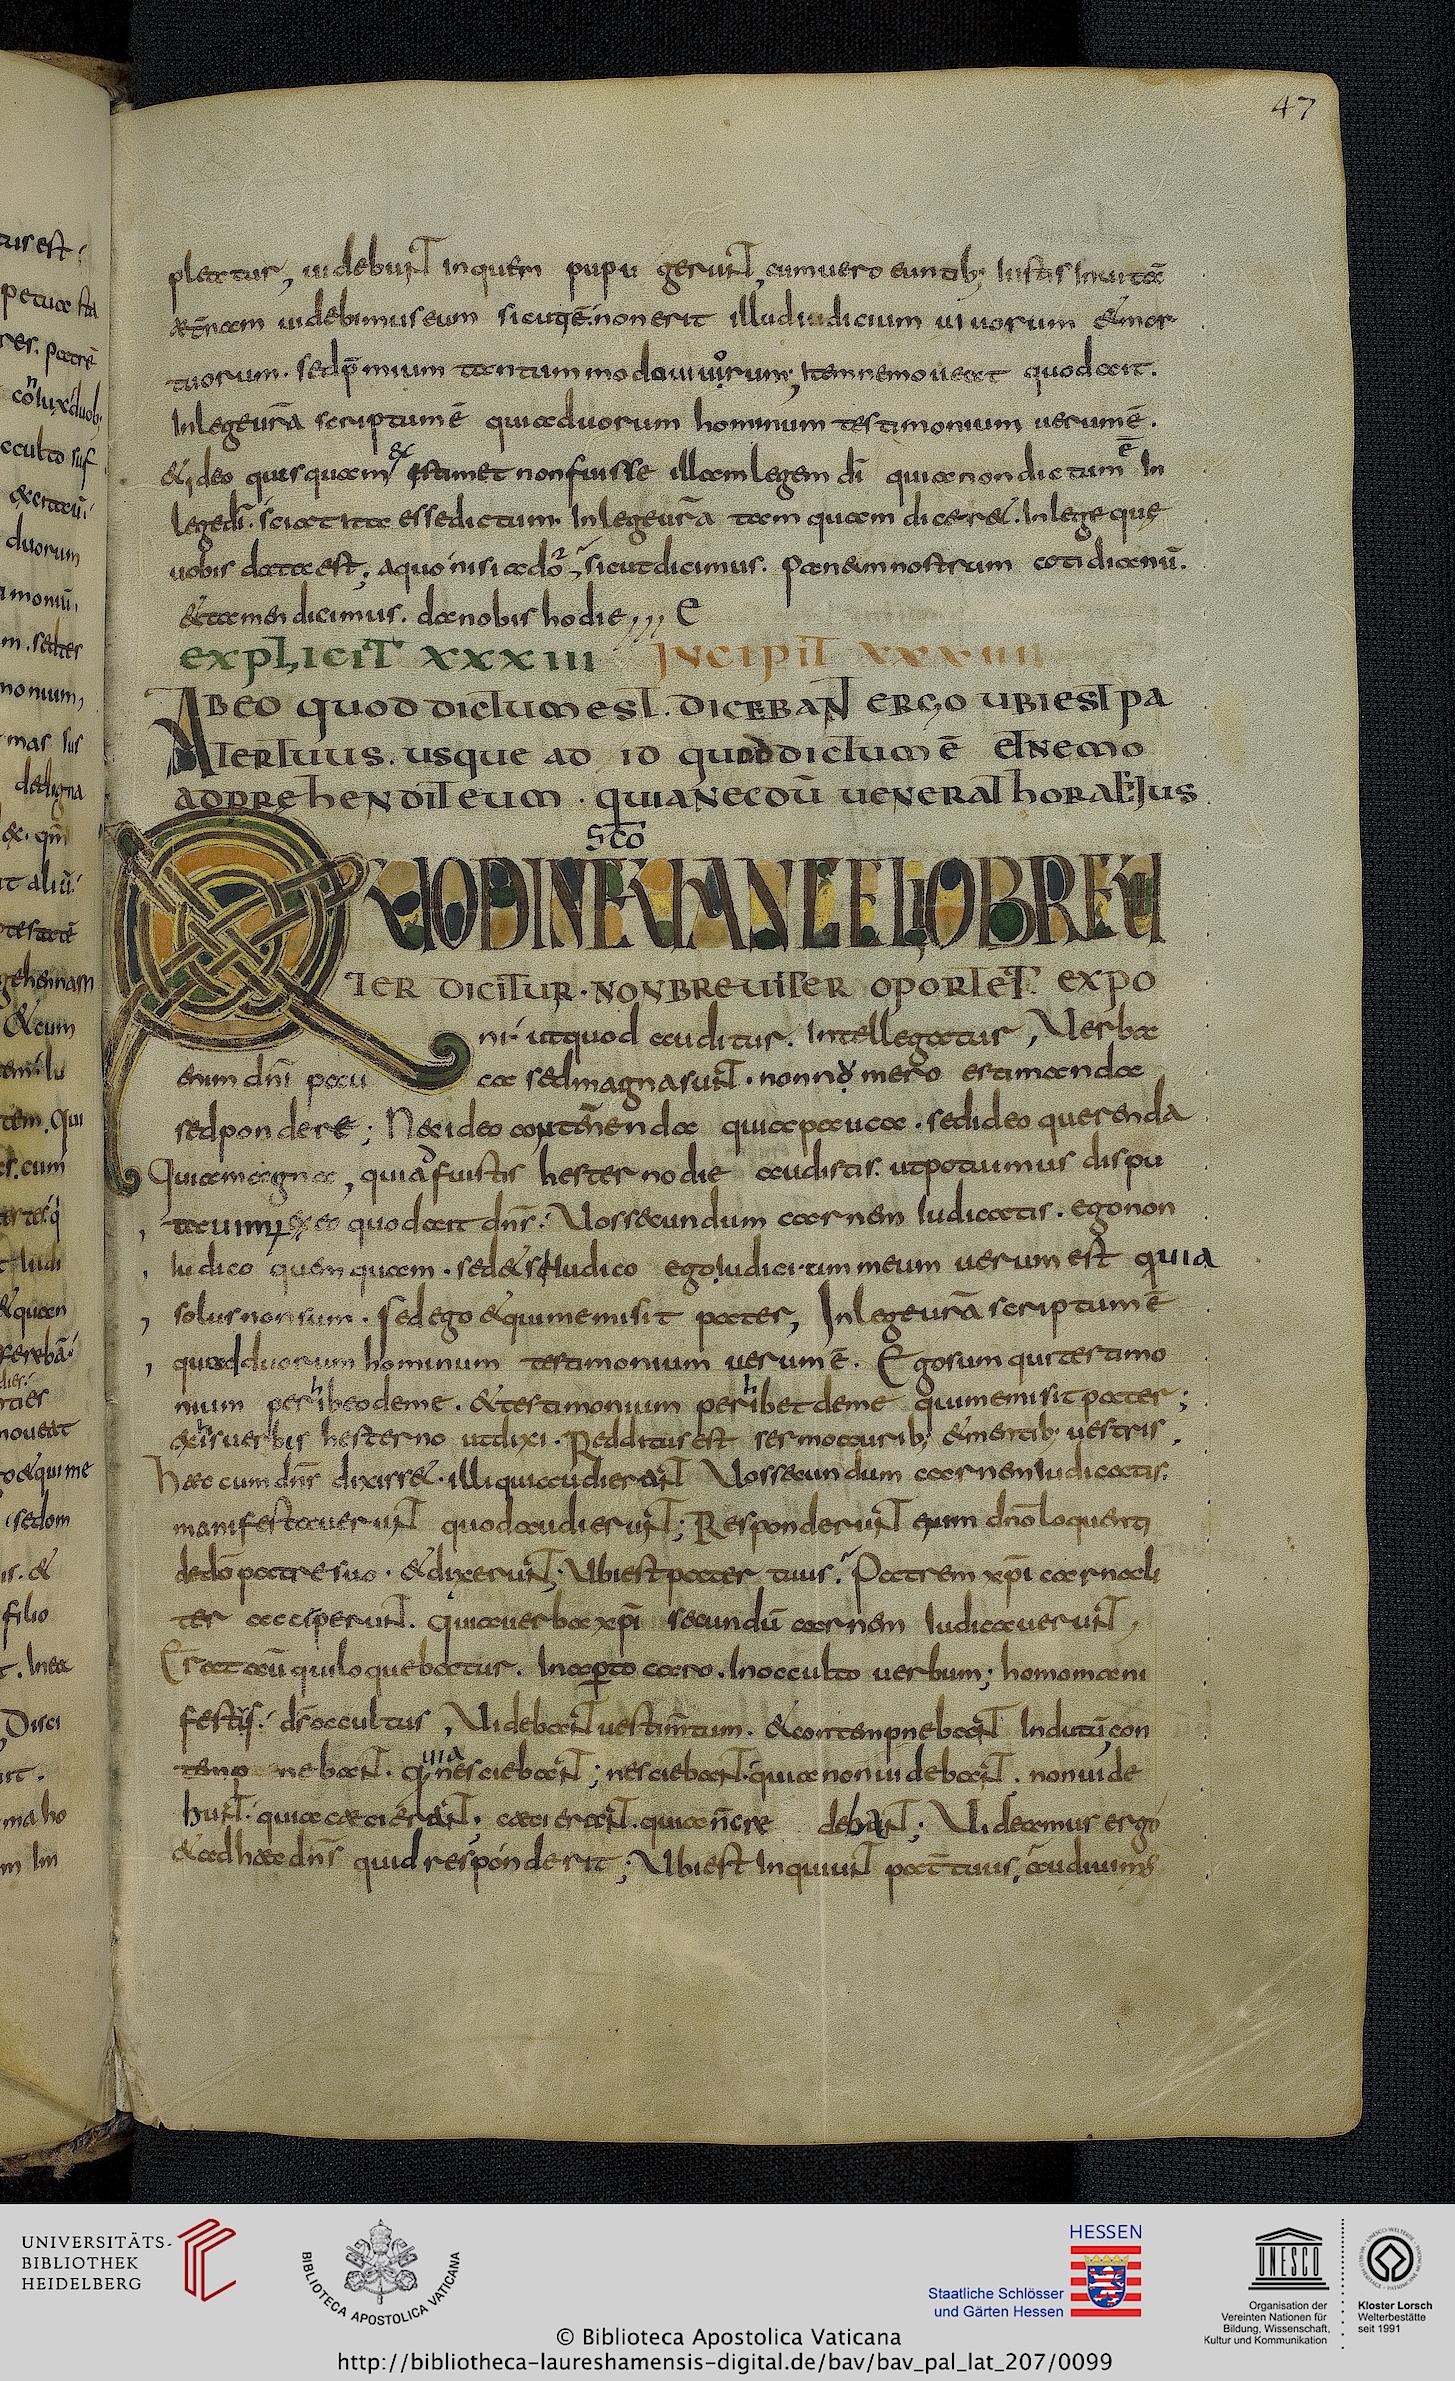 47
plectur, uidebunt inquem pupugerunt, cum uero euntib; iustis in uitā
ætnam uidebimus eum sicuti ē. non erit illud iudicium uiuorum & mor
tuorum. sed p̄mium tantummodo uiuorum; item nemo ueat quod ait.
In lege ur̄a scriptum ē quia duorum hominum testimonium uerum ē.
& ideo quisquam & estimet non fuisse illam legem di quia non dictum ē in
lege di. sciat ita esse dictum. In lege ur̄a tamquam diceret. In lege que
uobis data est; a quo nisi a do sicut dicimus. Panem nostrum cotidianū.
& tamen dicimus. da nobis hodie
EXPLICIT XXXIII INCIPIT XXXIIII
AB EO QUOD DICTUM EST. DICEBANT ERGO UBI EST PA
TER TUUS. USQUE AD ID QUOD DICTUM Ē ET NEMO
ADPREHENDIT EUM. QUIA NECDŪ UENERAT HORA EJUS
sc̄o
QUOD IN EUANGELIO BREUI
TER DICITUR. NON BREUITER OPORTET EXPO
ni. ut quod auditur. Intellegatur, Uerba
enim dn̄i pau cæ sed magna sunt. non nūmero estimanda
sed pondere; Nec ideo contēnenda quia pauca. sed ideo querenda
Quia magna, quia fuistis hesterno die audistis. ut potuimus dispu
tauimus ex eo quod ait dn̄s. Uos secundum carnem iudicatis. ego non
iudico quemquam. sed & si iudico ego iudicium meum uerum est quia
solus non sum. sed ego & qui me misit pater, In lege ur̄a scriptum ē
quod duorum hominum testimonium uerum ē. Ego sum qui testimo
nium perhibeo de me. & testimonium perhibet de me qui me misit pater;
ex his uerbis hesterno ut dixi. Redditus est sermo aurib; & mentib; uestris.
Hæc cum dn̄s dixisset. illi qui audierant Uos secundum carnem iudicatis.
manifestauerunt quod audierunt; Responderunt enim dn̄o loquenti
de dō patre suo. & dixerunt; Ubi est pater tuus. Patrem xp̄i carnali
ter acciperunt. quia uerba xp̄i secundū carnem iudicauerunt,
Erat aū qui loquebatur. In aperto caro. In occulto uerbum; homo mani
festus. dn̄s occultus, Uidebant uestimtum. & contempnebant Indutū, con
temp nebant. quia nesciebant; nesciebant. quia non uidebant. non uide
bunt. quia cæci erant; cæci erant. quia n̄ cre debant; Uideamus ergo
& ad hæc dn̄s quid responderit; Ubi est Inquiunt pat̄ tuus, audiuimus
UNIVERSITÄTS-
BIBLIOTHEK
HEIDELBERG
BIBLIOTECA APOSTOLICA VATICANA
HESSEN
Staatliche Schlösser
und Gärten Hessen
UNESCO
Organisation der
Vereinten Nationen für
Bildung, Wissenschaft,
Kultur und Kommunikation
Kloster Lorsch
Welterbestätte
seit 1991
© Biblioteca Apostolica Vaticana
http://bibliotheca-laureshamensis-digital.de/bav/bav_pal_lat_207/0099